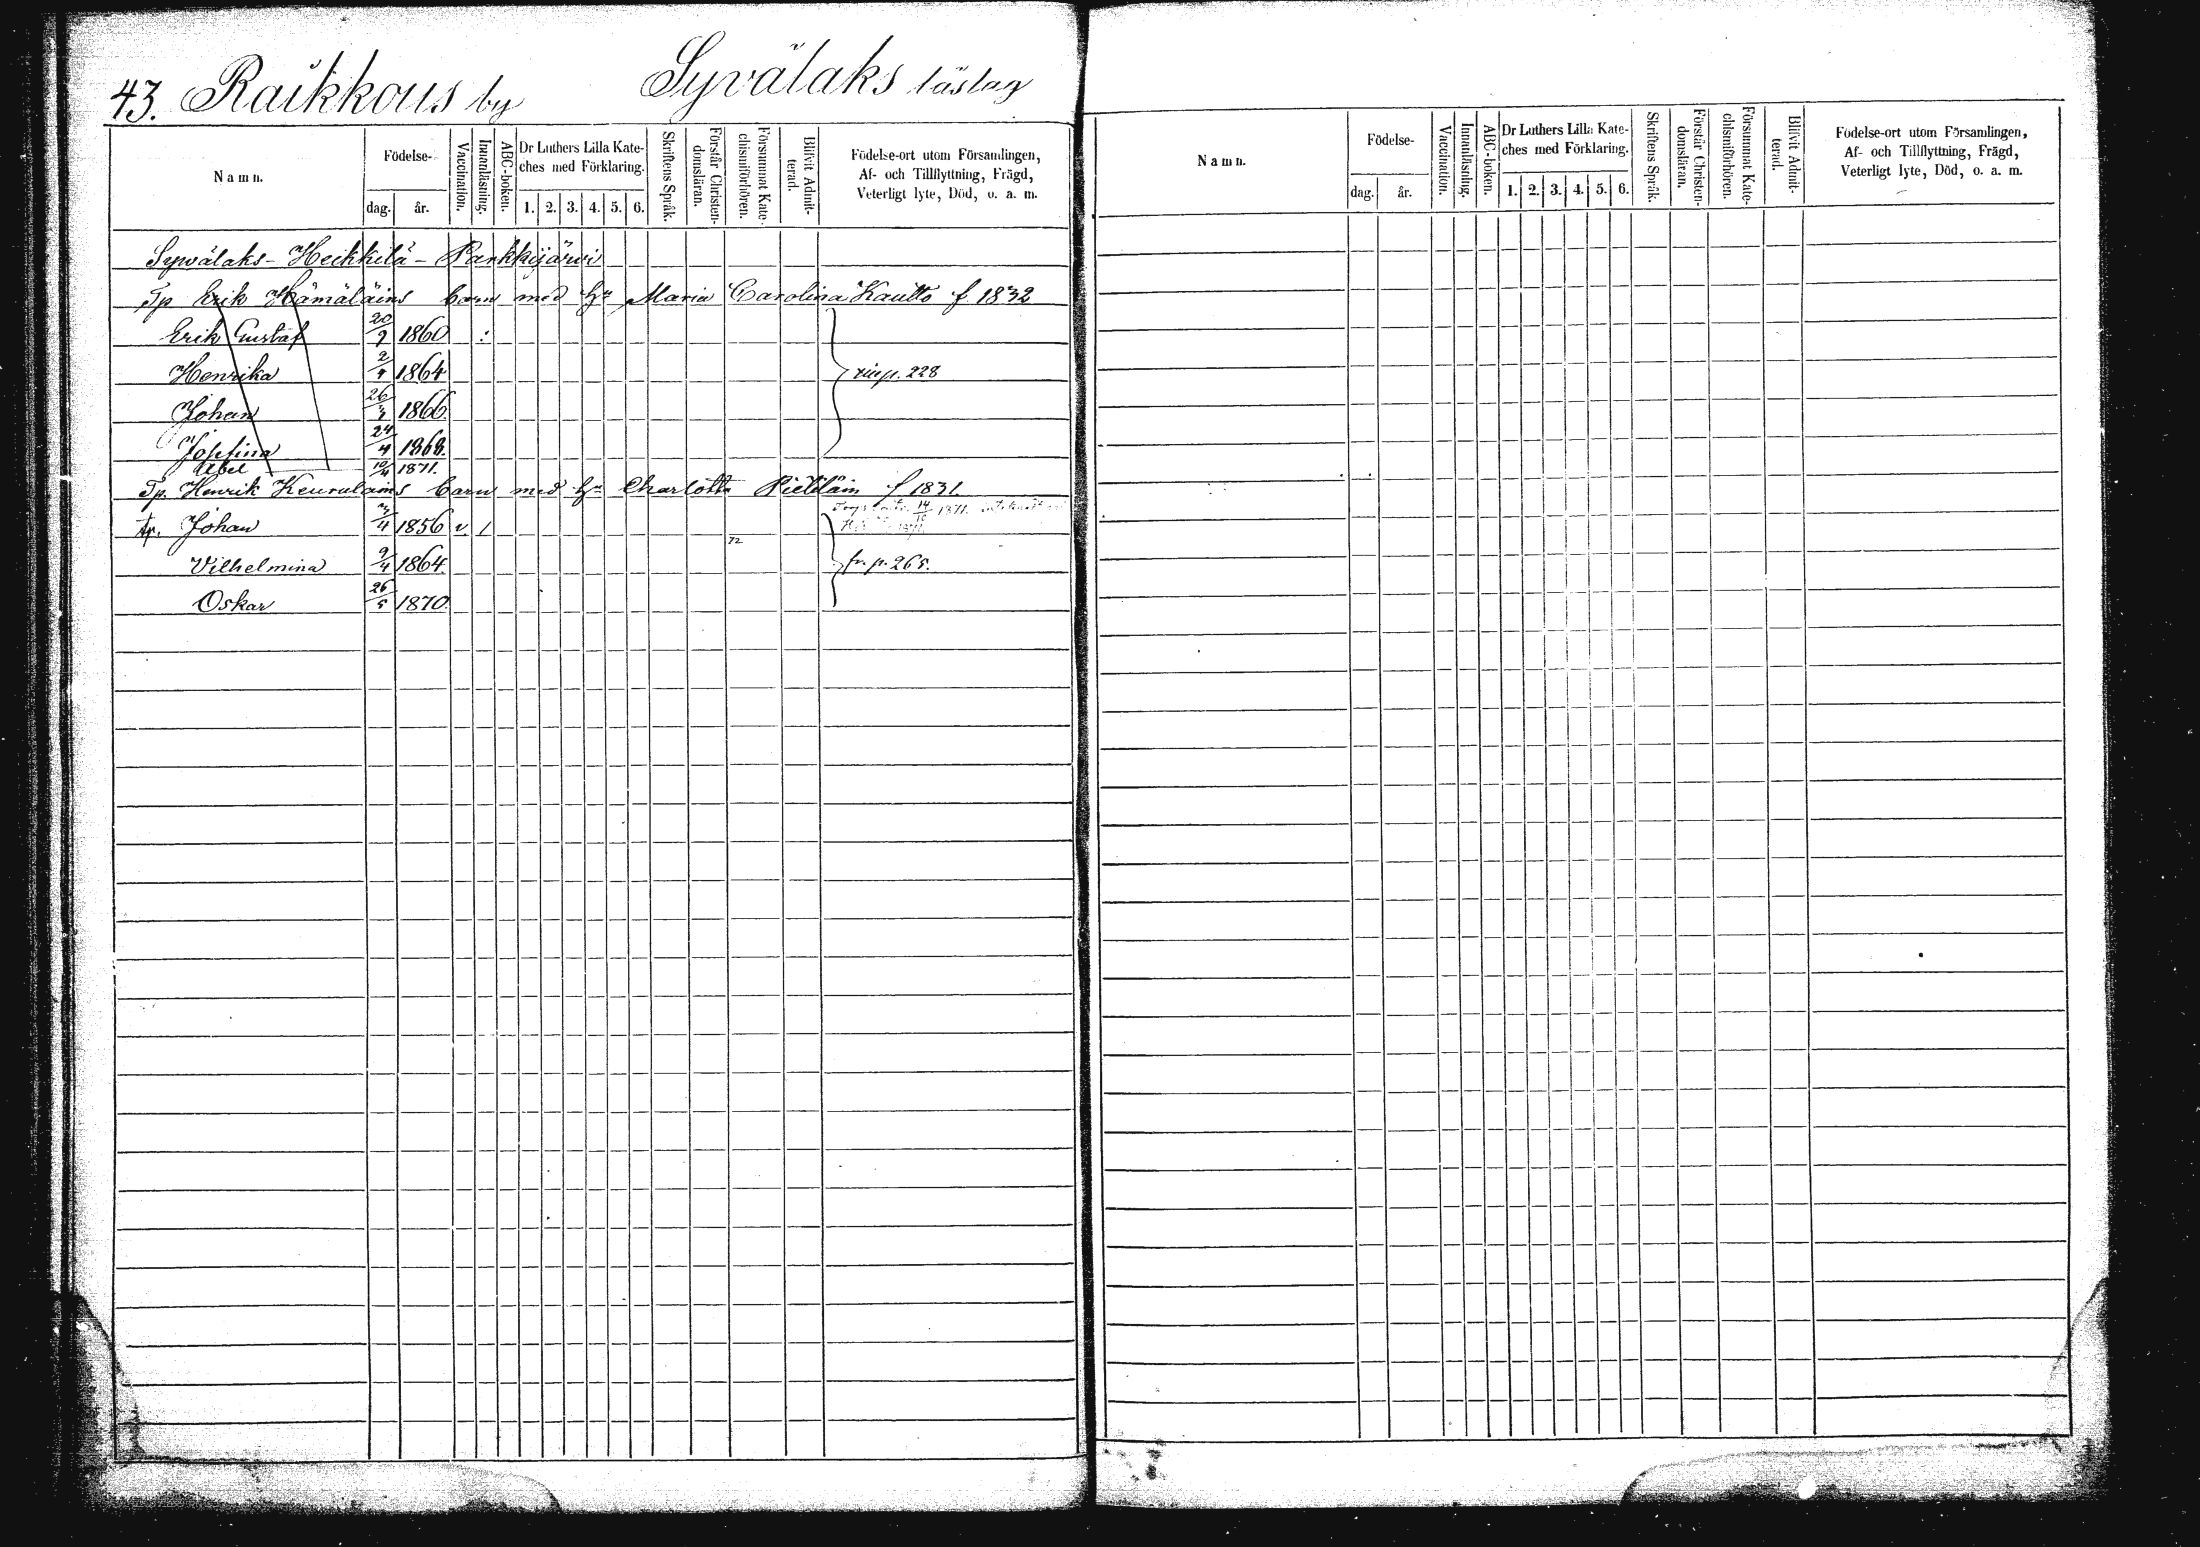 43. Raikkous by Syvälaks läslag
Namn. Födelse- dag. år. Vaccination. Innanläsning. ABC-boken. Dr Luthers Lilla Kate-ches med Förklaring. 1. 2. 3. 4. 5. 6. Skriftens Språk. Förstår Christen-domsläran. Försummat Kate-chismiförhören. Blifvit Admit-terad. Födelse-ort utom Församlingen, Af- och Tillflyttning, Frägd, Veterligt lyte, Död, o. a. m.
Syvälaks - Heikkilä - Pankkijärvi
Tp Erik Hämäläins barn med Hu Maria Carolina Kautto f. 1832
Erik Gustaf 20/9 1860
Henrika 2/4 1864 228
Johan 26/3 1866.
Josefina 24/4 1868.
Abel 10/4 1871.
Tp. Henrik Keurulains barn med Hu Charlotta f 1831.
14/10 1871.
tp. Johan 3/4 1856 v. /
72
Vilhelmina 9/4 1864. fr. p. 265.
Oskar 26/5 1870.
Namn. Födelse- dag. år. Vaccination. Innanläsning. ABC-boken. Dr Luthers Lilla Kate-ches med Förklaring. 1. 2. 3. 4. 5. 6. Skriftens Språk. Förstår Christen-domsläran. Försummat Kate-chismiförhören. Blifvit Admit-terad. Födelse-ort utom Församlingen, Af- och Tillflyttning, Frägd, Veterligt lyte, Död, o. a. m.